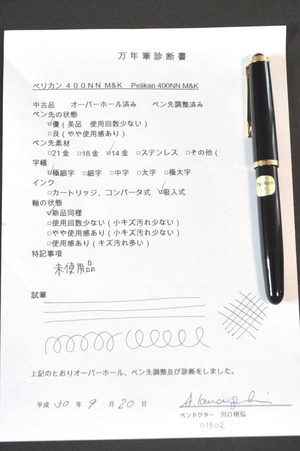 万年筆診断書
ペリカン 400NN M&K Pelikan 400NN M&K
中古品 オーバーホール済み ペン先調整済み
ペン先の状態
☑優(美品 使用回数少ない)
□良(やや使用感あり)
ペン先素材
□21金 □18金 ☑14金 □ステンレス □その他(
字幅
☑極細字 □細字 □中字 □太字 □極太字
インク
□カートリッジ、コンバータ式 ☑吸入式
軸の状態
☑新品同様
□使用回数少ない(小キズ汚れ少ない)
□やや使用感あり(小キズ汚れ少ない)
□使用感あり(キズ汚れ多い)
特記事項
未使用品
試筆
上記のとおりオーバーホール、ペン先調整及び診断をしました。
平成 30 年 9 月 20 日
ペンドクター 川口明弘
01802